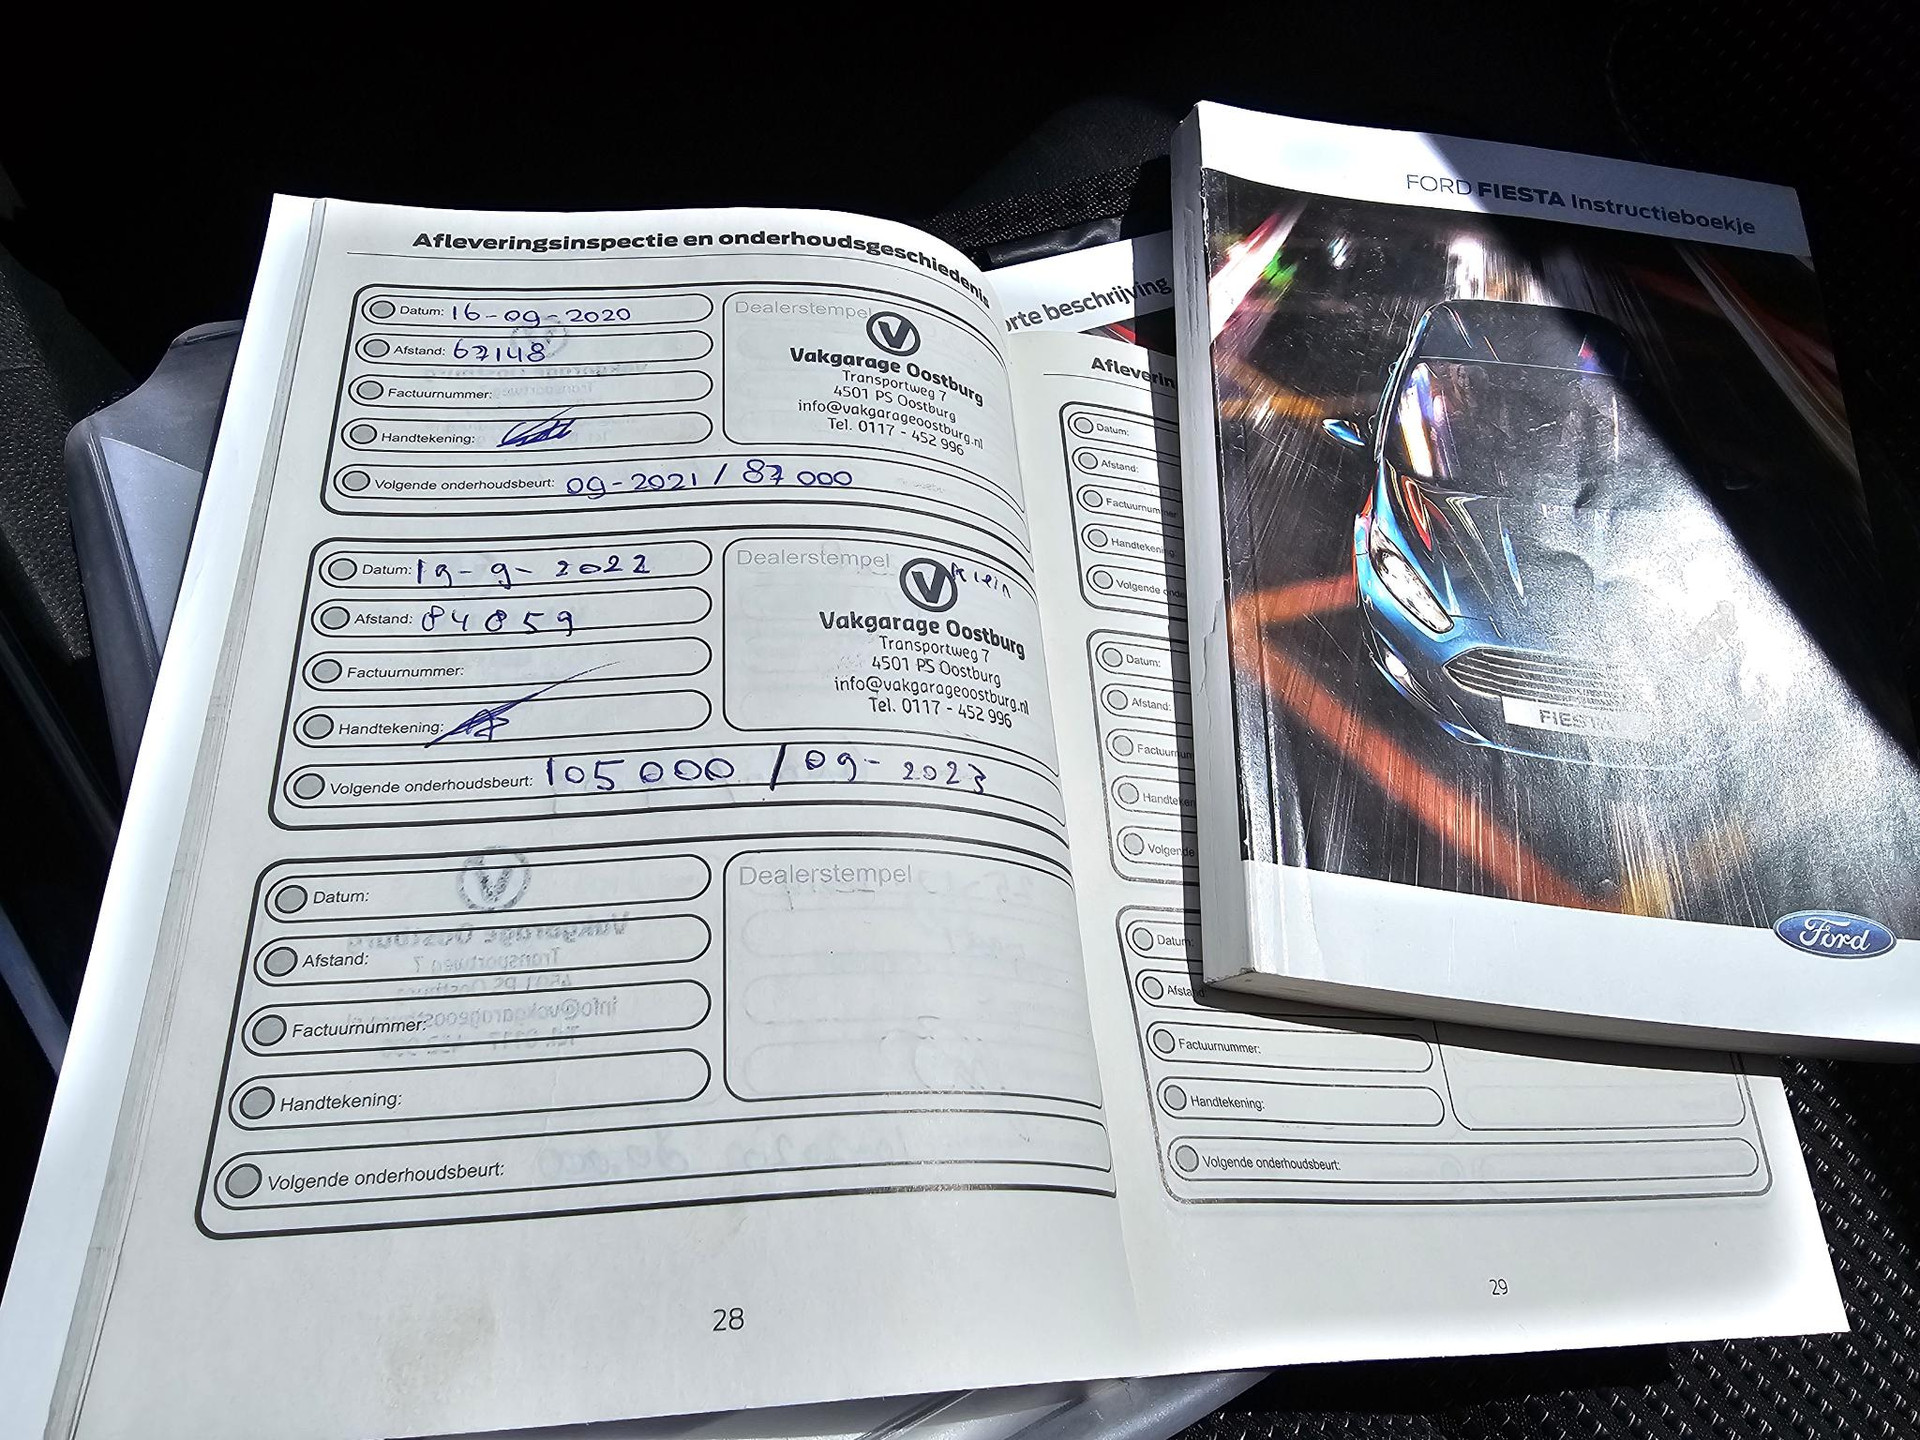 Afleveringsinspectie en onderhoudsgeschiedenis
Datum: 16-09-2020
Afstand: 67148
Factuurnummer:
Handtekening:
Volgende onderhoudsbeurt: 09-2021 / 87 000
Dealerstempel
V
Vakgarage Oostburg
Transportweg 7
4501 PS Oostburg
info@vakgarageoostburg.nl
Tel. 0117 - 452 996
Datum: 19-9-2022
Afstand: 84859
Factuurnummer:
Handtekening:
Volgende onderhoudsbeurt: 105 000 / 09-2023
Dealerstempel
V Klein
Vakgarage Oostburg
Transportweg 7
4501 PS Oostburg
info@vakgarageoostburg.nl
Tel. 0117 - 452 996
Datum:
Afstand:
Factuurnummer:
Handtekening:
Volgende onderhoudsbeurt:
Dealerstempel
28
orte beschrijving
Afleverin
Datum:
Afstand:
Factuurnummer
Handtekening
Volgende onde
Datum:
Afstand:
Factuurnu
Handteken
Volgende
Datum:
Afstand
Factuurnummer:
Handtekening:
Volgende onderhoudsbeurt:
29
FORD FIESTA Instructieboekje
FIESTA
Ford